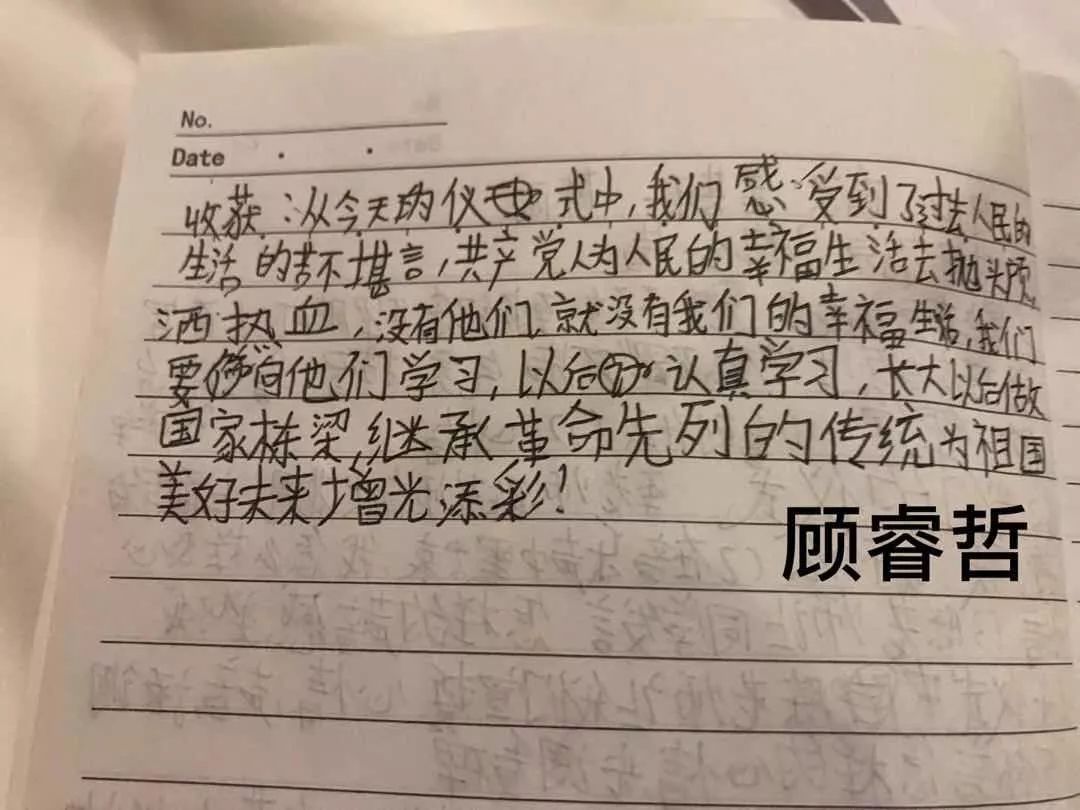 No.
Date
收获：从今天的仪式中，我们感受到了过去人民的
生活的苦不堪言，共产党人为人民的幸福生活去抛头颅
洒热血，没有他们就没有我们的幸福生活，我们
要向他们学习，以后认真学习，长大以后做
国家栋梁，继承革命先列的传统为祖国
美好未来增光添彩！
顾睿哲